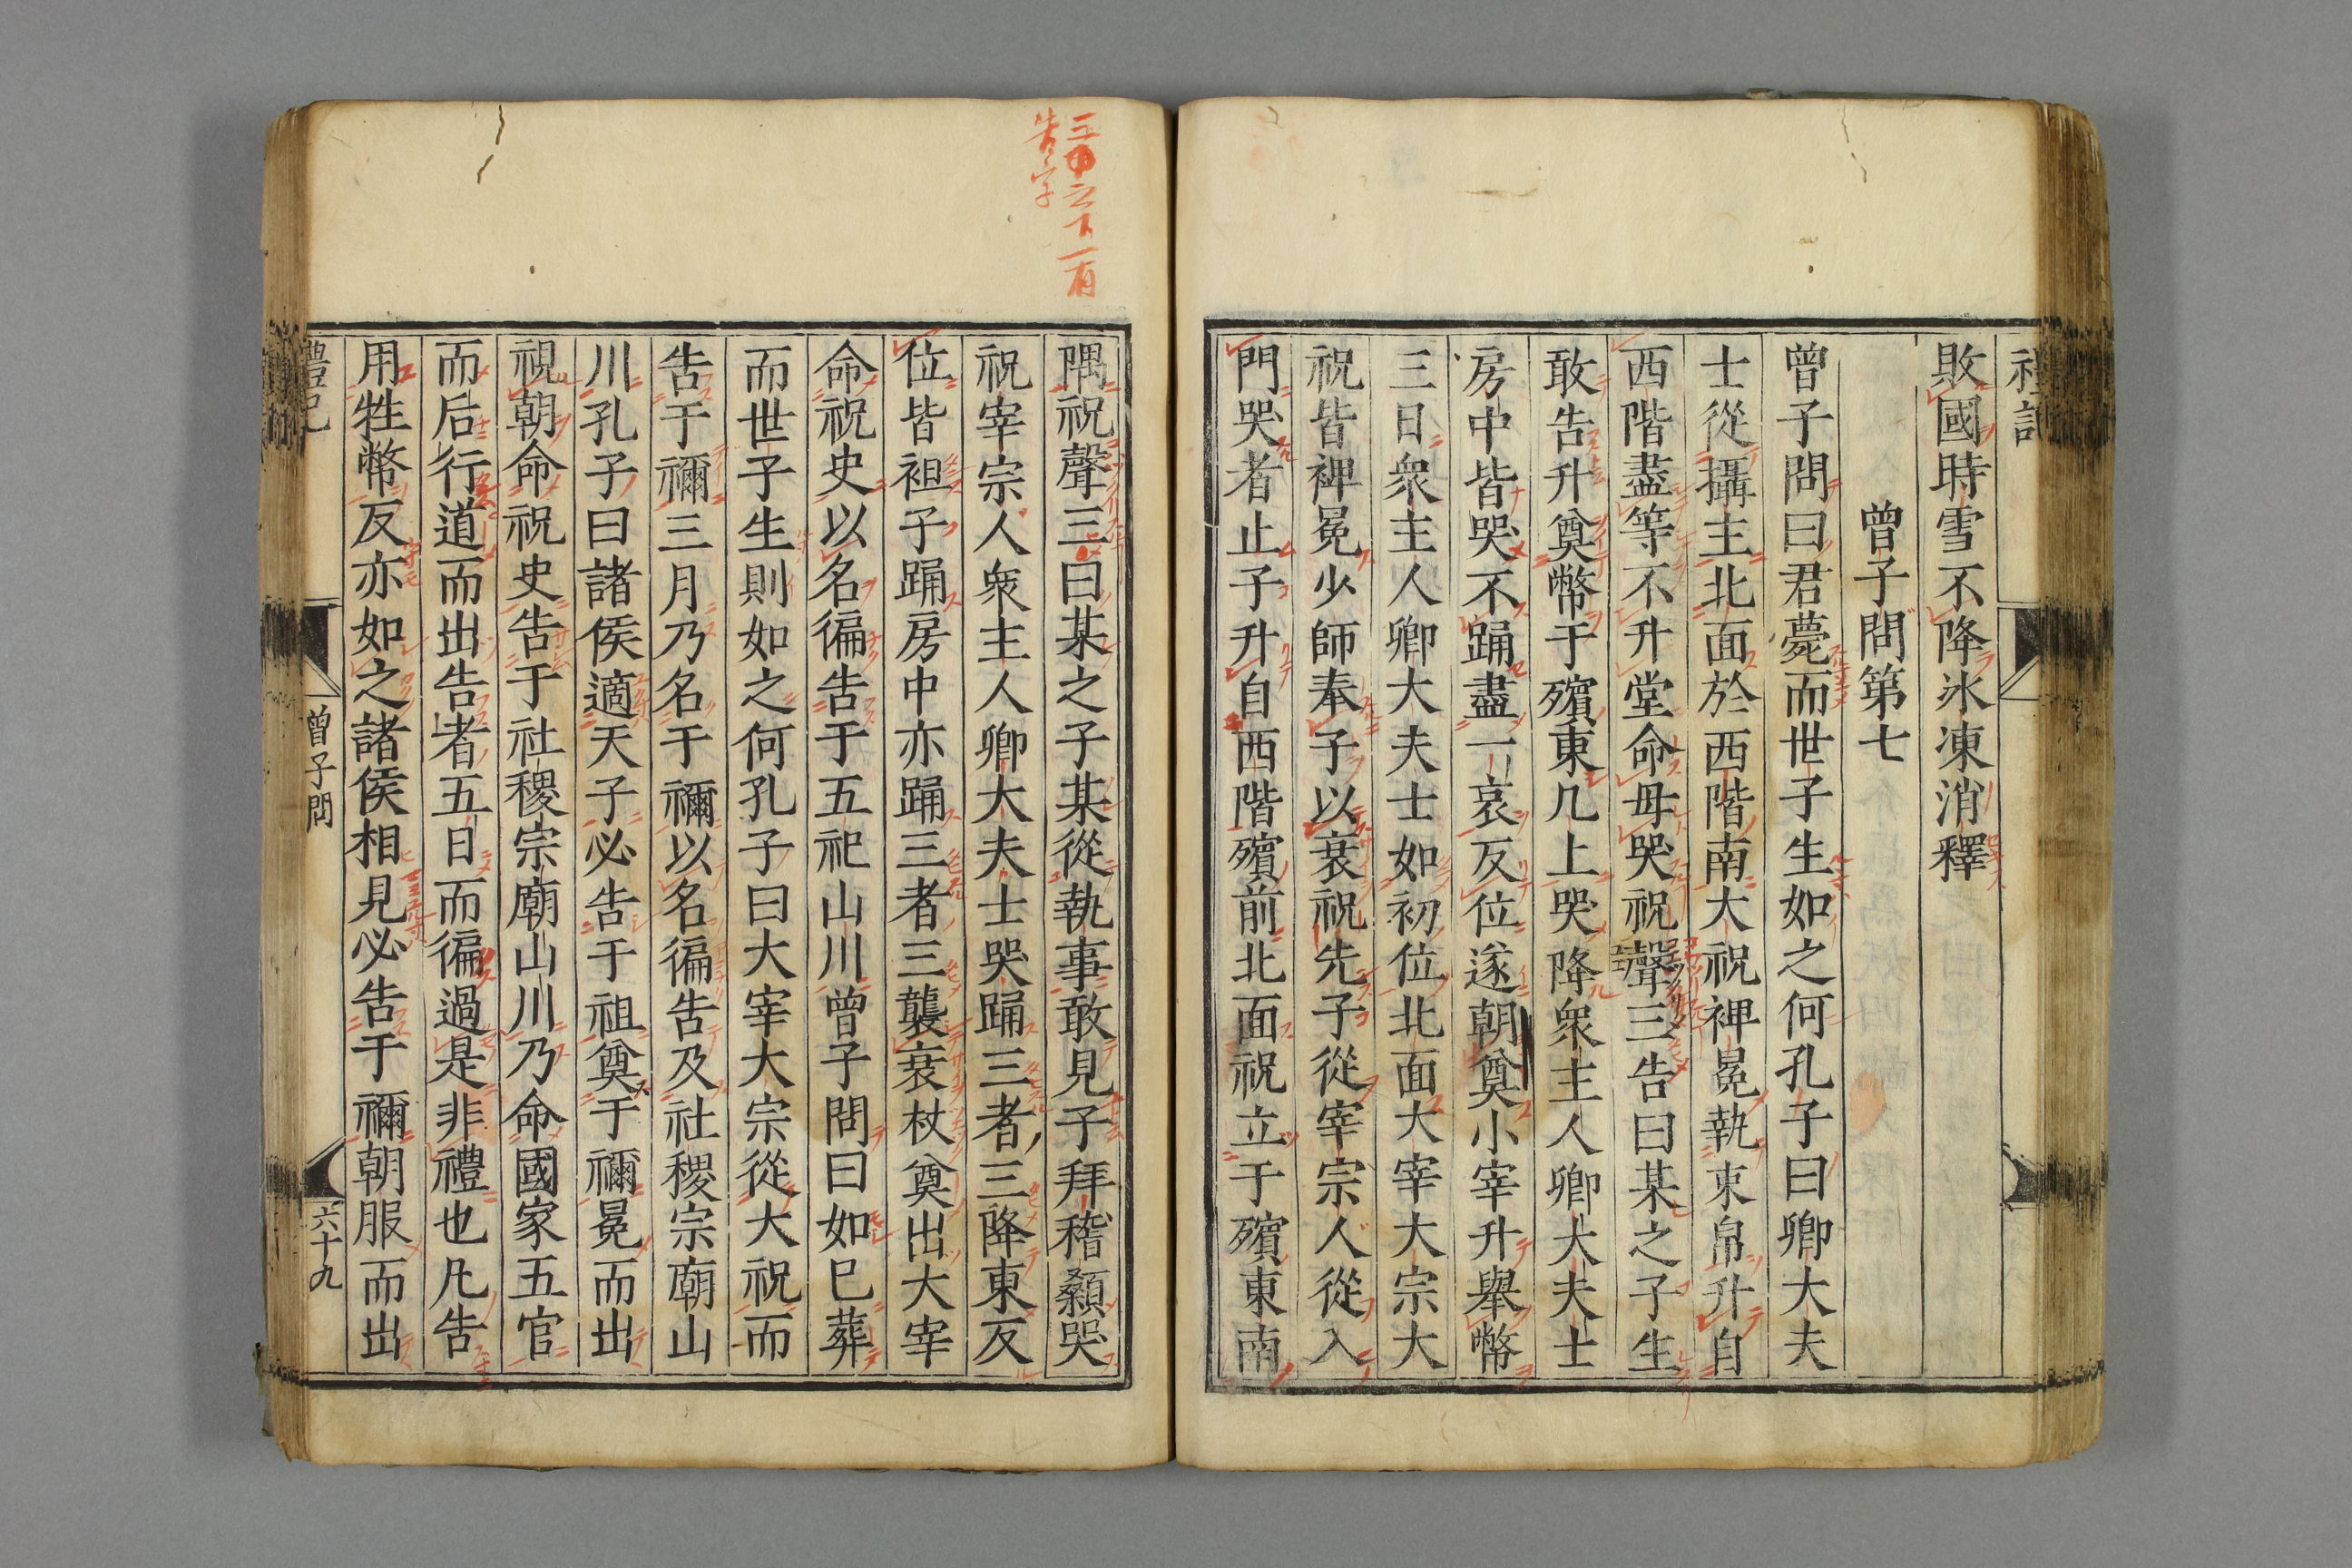 禮記
敗國時雪不降冰凍消釋
曾子問第七
曾子問曰君薨而世子生如之何孔子曰卿大夫
士從攝主北面於西階南大祝裨冕執束帛升自
西階盡等不升堂命毋哭祝聲三告曰某之子生
敢告升奠幣于殯東几上哭降衆主人卿大夫士
房中皆哭不踊盡一哀反位遂朝奠小宰升舉幣
三日衆主人卿大夫士如初位北面大宰大宗大
祝皆裨冕少師奉子以衰祝先子從宰宗人從入
門哭者止子升自西階殯前北面祝立于殯東南
三日之下一有
告字
隅祝聲三曰某之子某從執事敢見子拜稽顙哭
祝宰宗人衆主人卿大夫士哭踊三者三降東反
位皆袒子踊房中亦踊三者三襲衰杖奠出大宰
命祝史以名徧告于五祀山川曾子問曰如已葬
而世子生則如之何孔子曰大宰大宗從大祝而
告于禰三月乃名于禰以名徧告及社稷宗廟山
川孔子曰諸侯適天子必告于祖奠于禰冕而出
視朝命祝史告于社稷宗廟山川乃命國家五官
而后行道而出告者五日而徧過是非禮也凡告
用牲幣反亦如之諸侯相見必告于禰朝服而出
禮記
曾子問
六十九